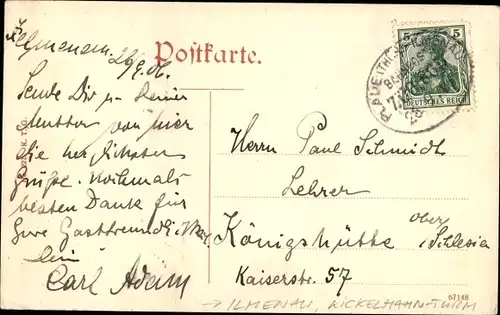 Ilmenau. 26/9. 06.
Postkarte.
Sende Dir u. Deiner
Mutter von hier
die herzlichsten
Grüße. Nochmals
besten Dank für
Eure Gastfreundlichkeit
Dein
Carl Adam
5 5
DEUTSCHES REICH
Herrn Paul Schmidt
Lehrer
Königshütte Ober Schlesien
Kaiserstr. 57
67148
→ ILMENAU, KICKELHAHN-TURM